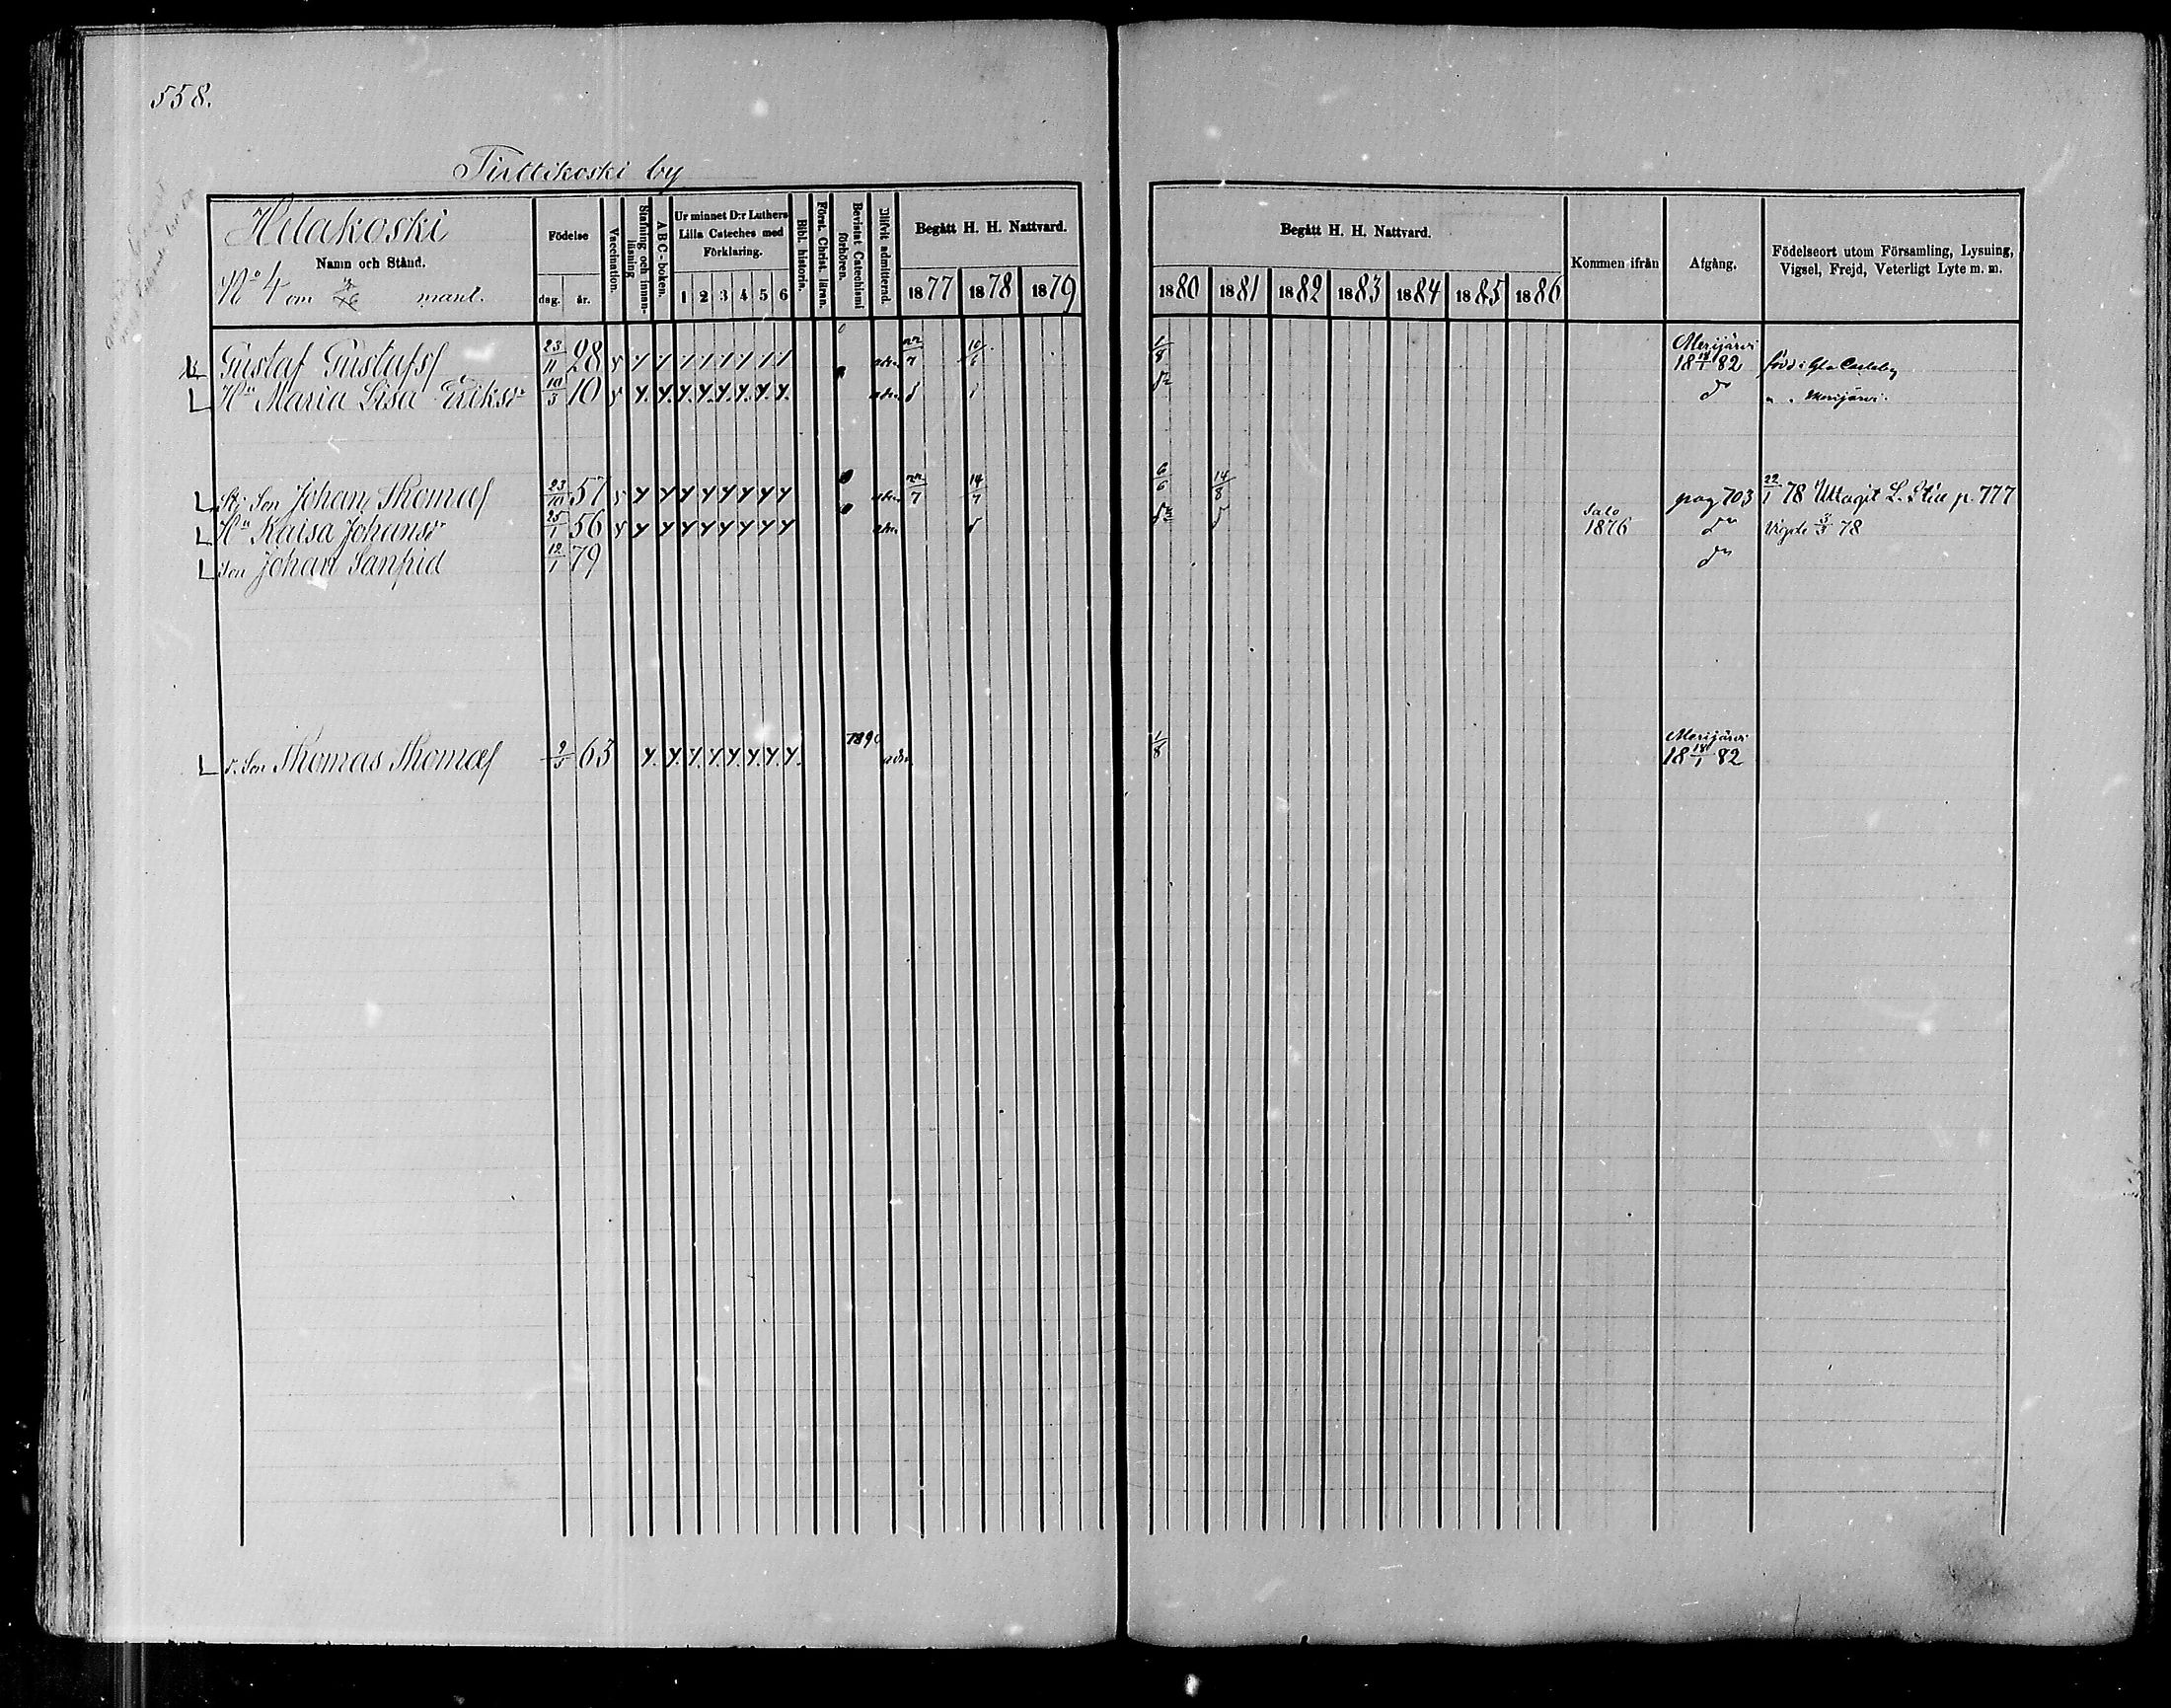 558.
Tirttikoski by
Helakoski
Namn och Stånd.
No 4 om mant.
Födelse
dag. år.
Vaccination.
Stafning och innan-läsning.
A B C-boken.
Ur minnet D:r Luthers Lilla Cateches med Förklaring.
1 2 3 4 5 6
Bibl. historia.
Först. Christ. läran.
Bevistat Catechismi förhören.
Blifvit admitterad.
Begått H. H. Nattvard.
1877 1878 1879
Begått H. H. Nattvard.
1880 1881 1882 1883 1884 1885 1886
Kommen ifrån
Afgång.
Födelseort utom Församling, Lysning, Vigsel, Frejd, Veterligt Lyte m. m.
Gustaf Gustafss 23/11 28 v adm. 22/7 10/6 1/8 Merijärvi 18 18/1 82 född i Gla Carleby
Hu Maria Lisa Eriksdr 10/3 10 v adm. do do " " Merijärvi.
Stj. Son Johan Thomass 23/10 57 v adm. 22/7 14/7 6/6 14/8 pag 703 22/1 78 Uttagit L. Städ p. 777
Hu Kaisa Johansdr 25/1 56 v adm. do Salo 1876 do Vigde 3/3 78
Son Johan Sanfrid 12/1 79 do
d. Son Thomas Thomass 9/5 63 1890 adm. 1/8 Merijärvi 18 18/1 82